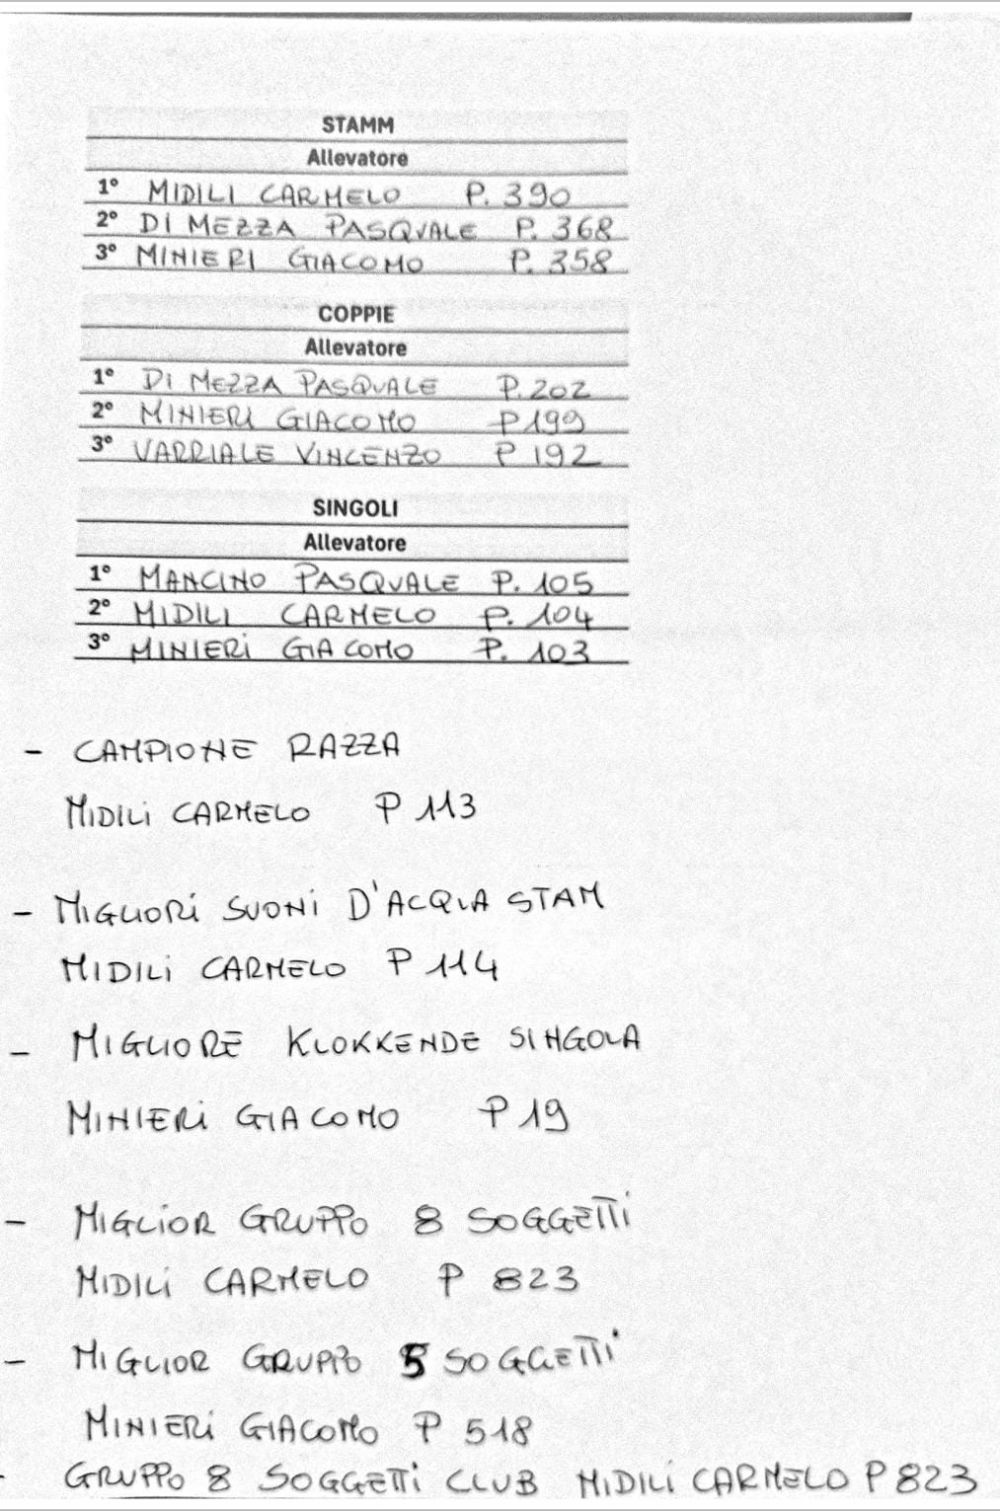 STAMM
Allevatore
1° MIDILI CARMELO P. 390
2° DI MEZZA PASQUALE P. 368
3° MINIERI GIACOMO P. 358
COPPIE
Allevatore
1° Di MEZZA PASQUALE P. 202
2° MINIERI GIACOMO P 199
3° VARRIALE VINCENZO P 192
SINGOLI
Allevatore
1° MANCINO PASQUALE P. 105
2° MIDILI CARMELO P. 104
3° MINIERi GIACOMO P. 103
- CAMPIONE RAZZA
MIDILi CARMELO P 113
- MIGLIORi SUONi D'ACQUA STAM
MIDILi CARMELO P 114
- MIGLIORE KLOKKENDE SINGOLA
MINIERi GIACOMO P 19
- MIGLIOR GRUPPO 8 SOGGETTi
MIDILi CARMELO P 823
- MIGLIOR GRUPPO 5 SOGGETTi
MINIERi GIACOMO P 518
- GRUPPO 8 SOGGETTi CLUB MIDILi CARMELO P 823